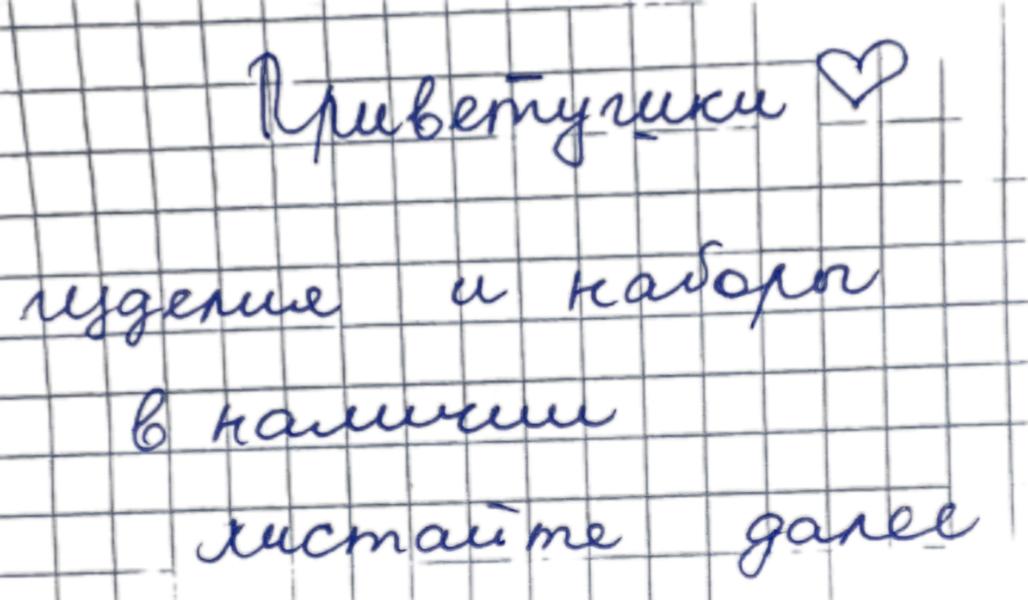 Приветушки ♡
изделия и наборы
в наличии
листайте далее